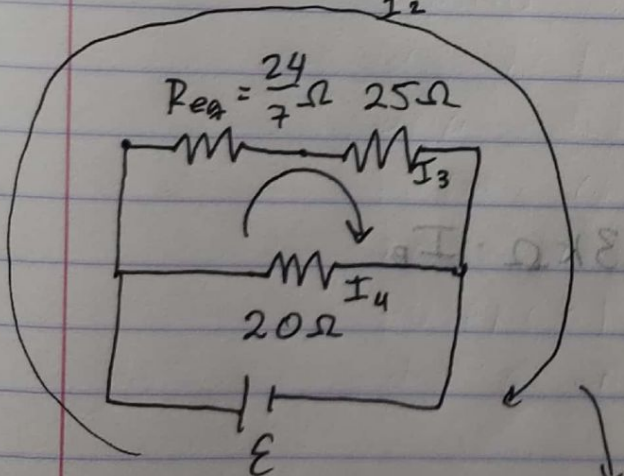 I₂
Req = 24/7 Ω 25Ω
I₃
I₄
20Ω
ε